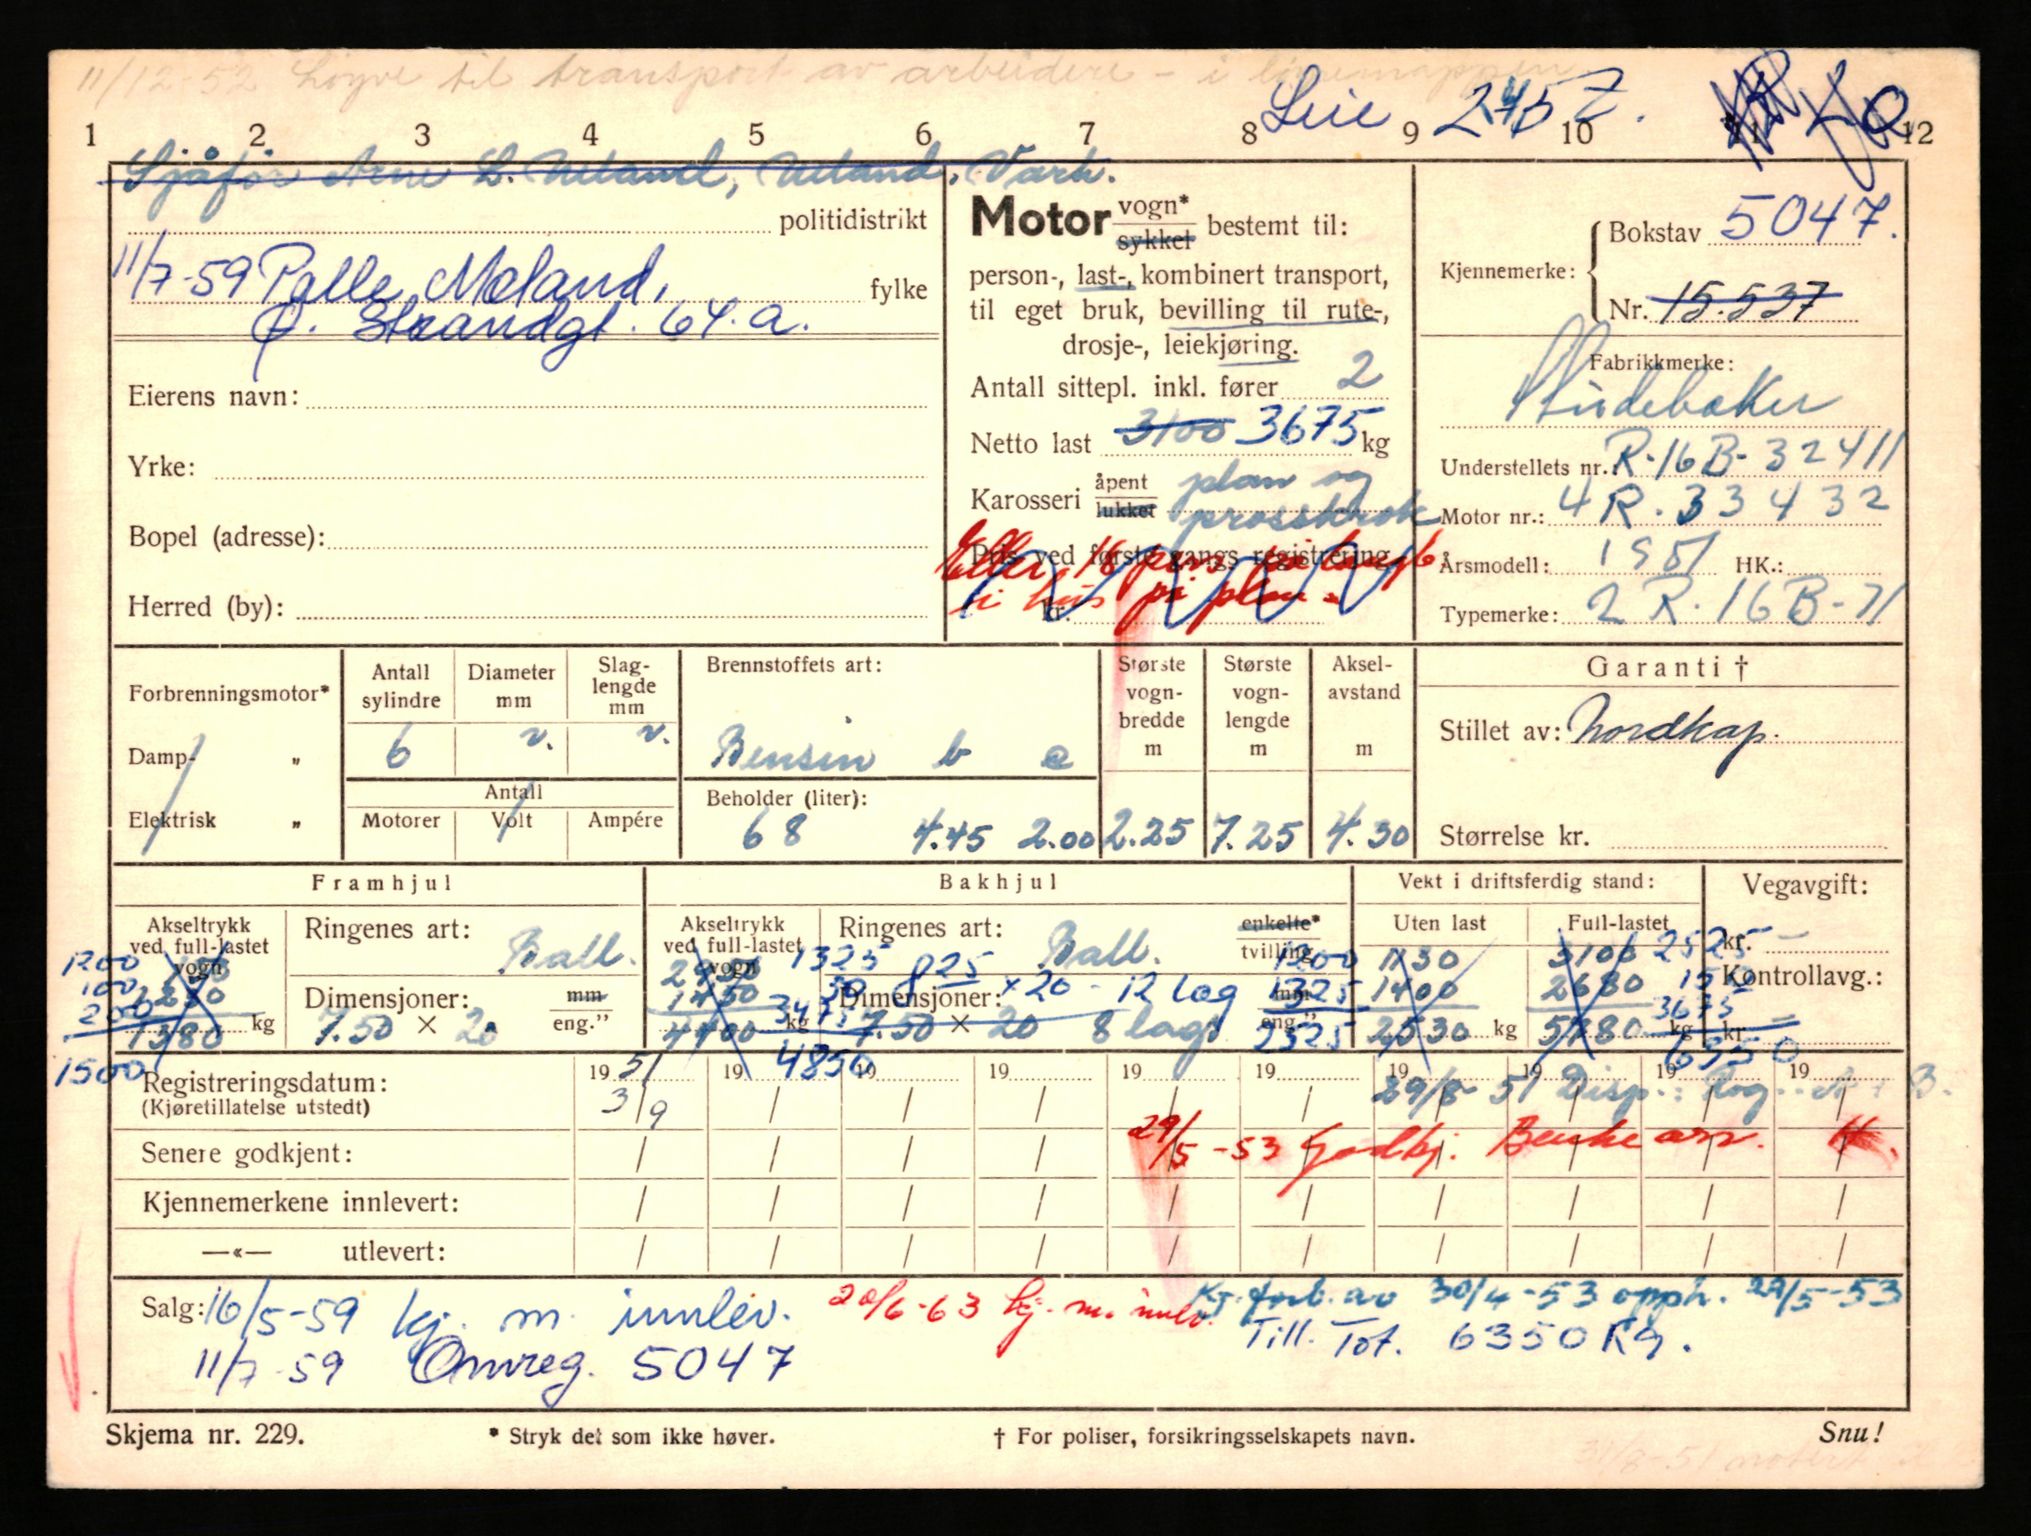 11/12-52 Løyve til transport av arbeidere - i
Leie
1 2 3 4 5 6 7 8 9 10 11 12
Sjåfør Arne L. Ueland, Ueland, Varh.
politidistrikt
11/7-59 Palle Meland,
fylke
Ø. Strandgt. 64.a.
Eierens navn:
Yrke:
Bopel (adresse):
Herred (by):
Motor vogn* sykkel bestemt til:
person-, last-, kombinert transport,
til eget bruk, bevilling til rute-,
drosje-, leiekjøring.
Antall sittepl. inkl. fører 2
Netto last 3100 3675 kg
Karosseri åpent lukket plan og
Pris ved første gangs registrering
Eller 16 pers.
på plan.
kr.
Kjennemerke: Bokstav 5047.
Nr. 15.537
Fabrikkmerke:
Studebaker
Understellets nr.: R-16B-32411
Motor nr.: 4R.33432
Årsmodell: 1951 HK.:
Typemerke: 2R-16B-71
Forbrenningsmotor*
Damp- „
Elektrisk „
Antall sylindre Diameter mm Slaglengde mm
6 v. v.
Antall
Motorer Volt Ampére
Brennstoffets art:
Bensin b e
Beholder (liter):
68 4.45 2.00
Største vogn-bredde m 2.25
Største vogn-lengde m 7.25
Aksel-avstand m 4.30
Garanti †
Stillet av: Nordkap.
Størrelse kr.
Framhjul Bakhjul Vekt i driftsferdig stand: Vegavgift:
Akseltrykk ved full-lastet vogn
1200
100
200
1500
1380 kg
Ringenes art: Ball.
Dimensjoner: mm eng."
7.50 × 20
Akseltrykk ved full-lastet vogn
1325
50
3475
4850
1450
4400 kg
Ringenes art: Ball. enkelte* tvilling
825 × 20 - 12 lag
Dimensjoner: mm eng."
7.50 × 20 8 lags
Uten last
1200 1130
1325 1400
2525 2530 kg
Full-lastet
3100 2525
2680 150
3675
5780 kg
6350
kr. —
Kontrollavg.:
kr. —
Registreringsdatum:
(Kjøretillatelse utstedt)
19 51 19 19 19 19 19 19 19 19 19
3/9
29/8-51 Disp.: Rog.
Senere godkjent:
29/5-53 Godkj. Benke arr.
Kjennemerkene innlevert:
—«— utlevert:
Salg: 16/5-59 kj. m. innlev. 20/6-63 kj. m. innlv. Kj. forb. av 30/4-53 opph. 29/5-53
Till. Tot. 6350 Kg.
11/7-59 Omreg. 5047
Skjema nr. 229. * Stryk det som ikke høver. † For poliser, forsikringsselskapets navn. Snu!
31/8-51 notert